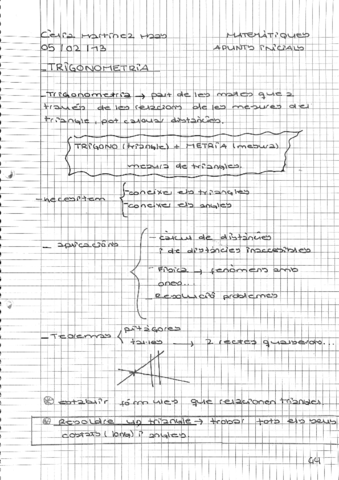 Celia Martínez Mas
MATEMÀTIQUES
05/02/13
APUNTS INICIALS
TRIGONOMETRIA
- Trigonometria → part de les mates que a
través de les relacions de les mesures del
triangle, pot calcular distàncies.
TRIGONO (triangle) + METRIA (mesura)
mesura de triangles.
- necesitem
coneixer els triangles
coneixer els angles
- aplicacions
- càlcul de distàncies
i de distàncies inaccesibles
- Física → fenòmens amb
ones...
- Resolució problemes
- Teoremes
pitàgores
tales → 2 rectes qualsevol...
establir fórmules que relacionen triangles
Resoldre un triangle → trobar tots els seus
costats (long) i angles